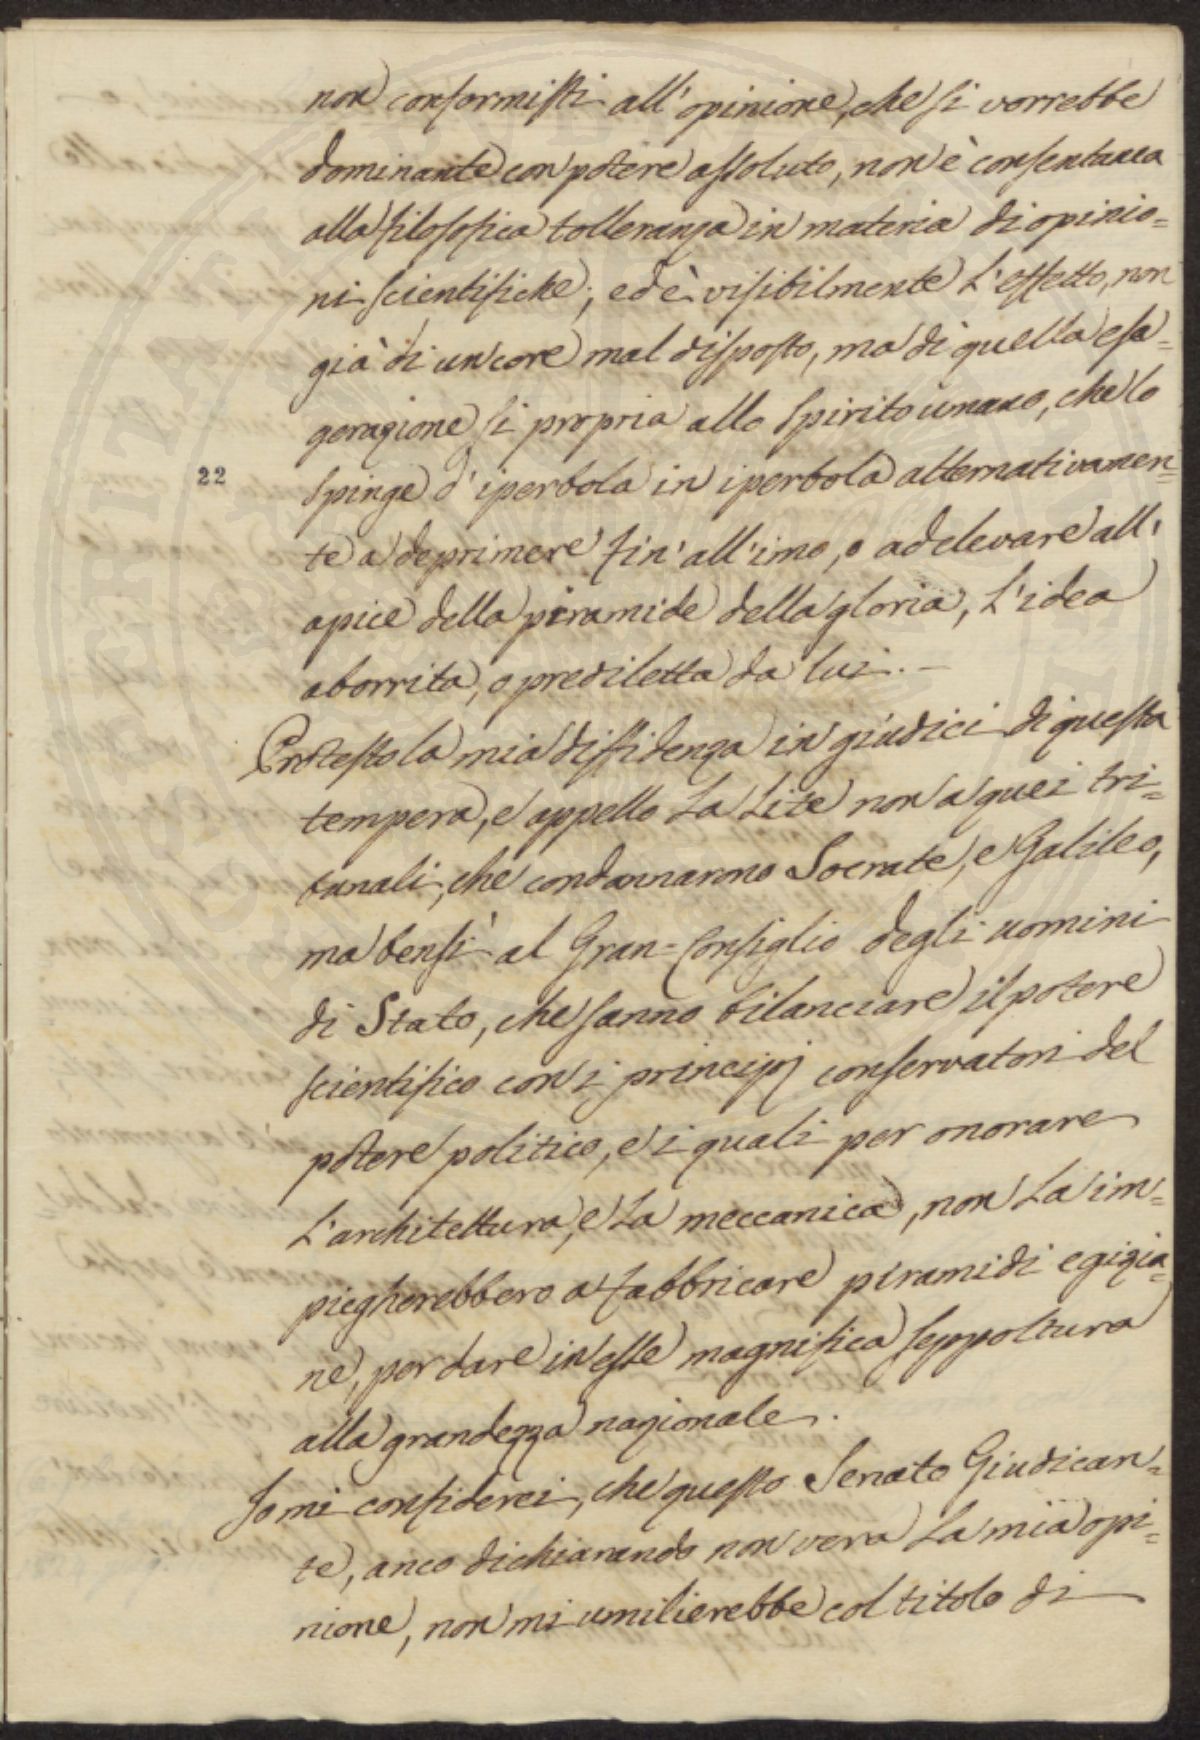 non conformisti all'opinione, che si vorrebbe
dominante con potere assoluto, non è consentanea
alla filosofica tolleranza in materia di opinio=
ni scientifiche; ed è visibilmente l'effetto, non
già di un core mal disposto, ma di quella esa=
gerazione si propria allo spirito umano, che lo
22
spinge d'iperbola in iperbola alternativamen=
te a deprimere fin'all'imo, o ad elevare all'
apice della piramide della gloria, l'idea
aborrita, o prediletta da lui. —
Protesto la mia diffidenza in giudici di questa
tempera, e appello la lite non a quei tri=
bunali, che condannarono Socrate, e Galileo,
ma bensì al Gran=Consiglio degli uomini
di Stato, che sanno bilanciare il potere
scientifico con i principj conservatori del
potere politico, e i quali per onorare
l'architettura, e la meccanica, non la im=
piegherebbero a fabbricare piramidi egizia=
ne, per dare in esse magnifica seppoltura
alla grandezza nazionale.
Io mi confiderei, che questo Senato Giudican=
te, anco dichiarando non vera la mia opi=
nione, non mi umilierebbe col titolo di